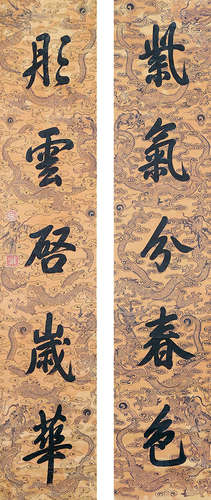 紫氣分春色
彤雲啓歲華